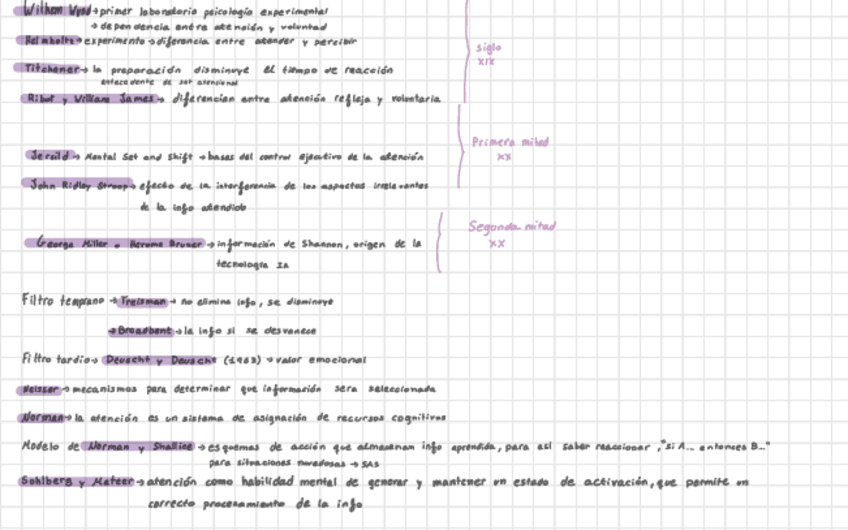 Wilhem Wynd → primer laboratorio psicología experimental
→ dependencia entre atención y voluntad
Helmholtz → experimento → diferencia entre atender y percibir
Titchener → la preparación disminuye el tiempo de reacción
antecedente de set atencional
Ribot y William James → diferencian entre atención refleja y voluntaria
siglo
XIX
Jersild → Mental Set and Shift → bases del control ejecutivo de la atención
John Ridley Stroop → efecto de la interferencia de los aspectos irrelevantes
de la info atendida
Primera mitad
XX
George Miller o Jerome Bruner → información de Shannon, origen de la
tecnología IA
Segunda mitad
XX
Filtro temprano → Treisman → no elimina info, se disminuye
→ Broadbent → la info si se desvanece
Filtro tardío → Deuscht y Deuscht (1963) → valor emocional
Neisser → mecanismos para determinar que información sera seleccionada
Norman → la atención es un sistema de asignación de recursos cognitivos
Modelo de Norman y Shallice → esquemas de acción que almacenan info aprendida, para así saber reaccionar, "si A... entonces B..."
para situaciones novedosas → SAS
Sohlberg y Mateer → atención como habilidad mental de generar y mantener un estado de activación, que permite un
correcto procesamiento de la info